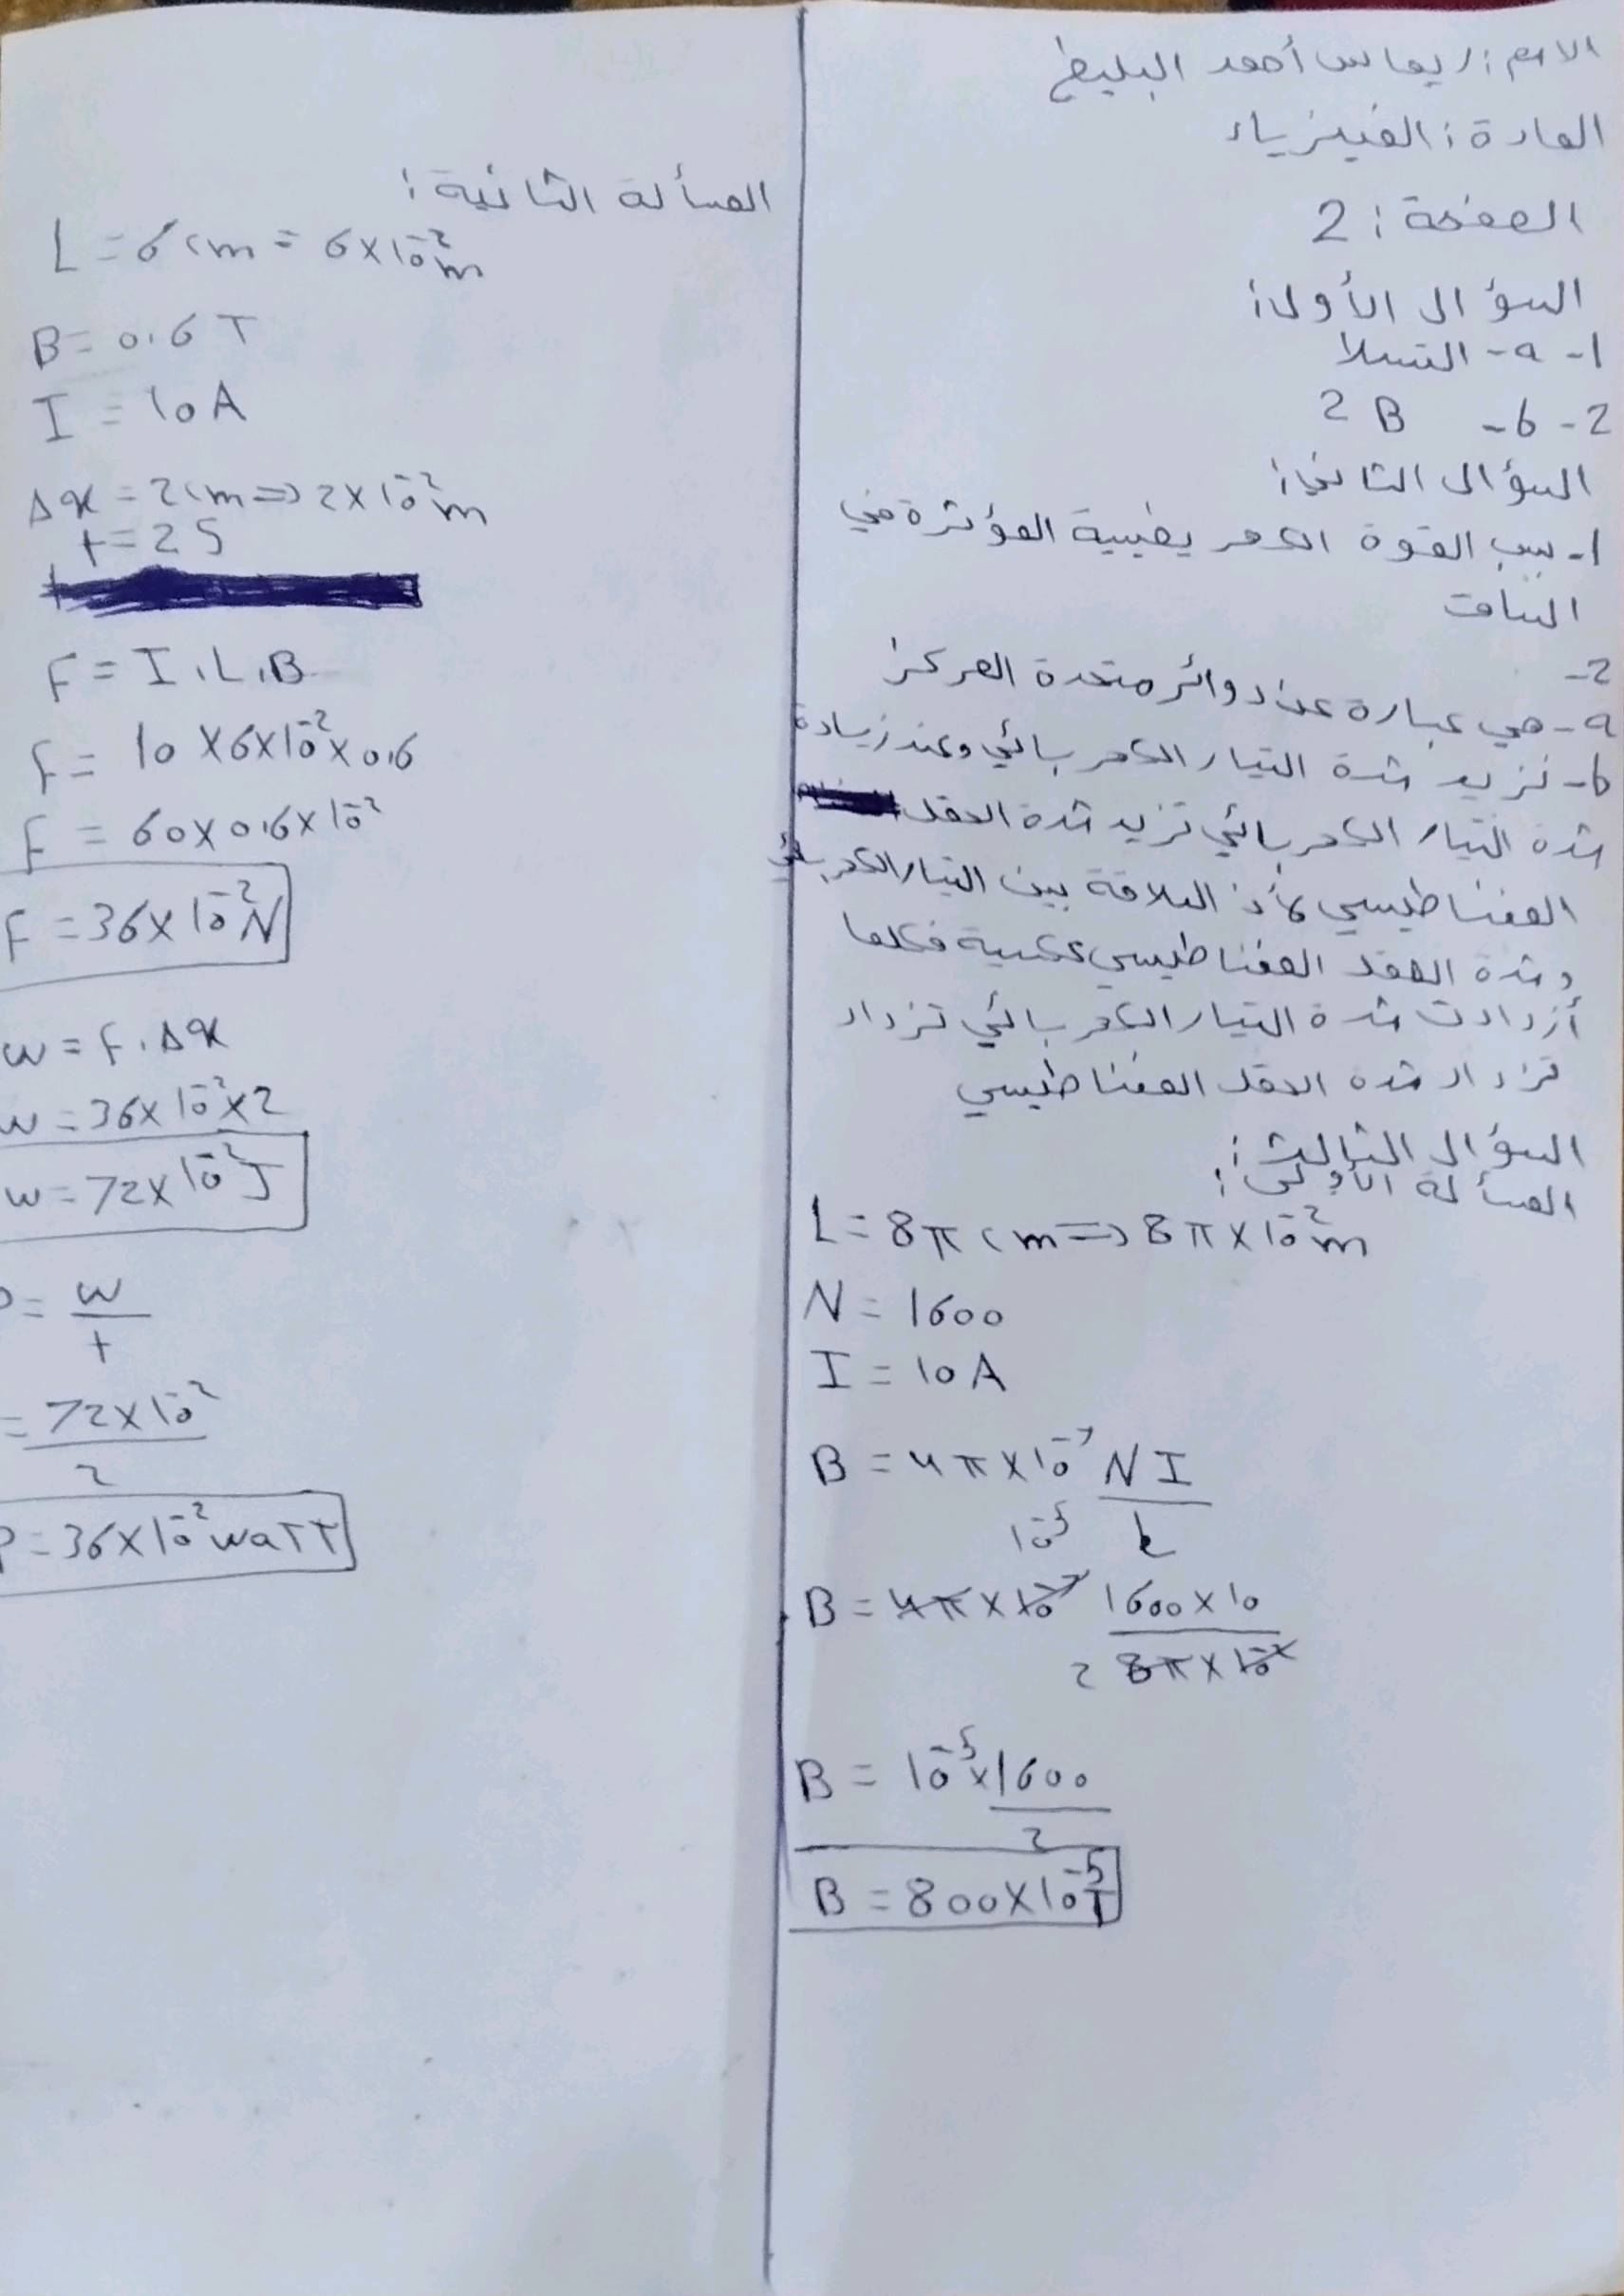 الاسم: ريماس أحمد البليخ
المادة: الفيزياء
الصفحة: 2
السؤال الأول:
1- a- التسلا
2- b- 2B
السؤال الثاني:
1- بسبب القوة الكهرطيسية المؤثرة في
الساق
2-
a- هي عبارة عن دوائر متحدة المركز
b- نزيد شدة التيار الكهربائي وعند زيادة
شدة التيار الكهربائي تزيد شدة الحقل
المغناطيسي لأن العلاقة بين التيار الكهربائي
وشدة الحقل المغناطيسي عكسية فكلما
أزدادت شدة التيار الكهربائي تزداد
تزداد شدة الحقل المغناطيسي
السؤال الثالث:
المسألة الأولى:
L = 8π cm => 8π×10⁻² m
N = 1600
I = 10 A
B = 4π×10⁻⁷ NI
10⁻⁵ L
B = 4π×10⁻⁷ 1600×10
2 8π×10⁻²
B = 10⁻⁵×1600
2
B = 800×10⁻⁵ T
المسألة الثانية:
L = 6cm = 6×10⁻² m
B = 0.6 T
I = 10 A
Δx = 2cm => 2×10⁻² m
t = 2 S
F = I.L.B
F = 10×6×10⁻²×0.6
F = 60×0.6×10⁻²
F = 36×10⁻² N
w = F.Δx
w = 36×10⁻²×2
w = 72×10⁻² J
P = w
t
= 72×10⁻²
2
P = 36×10⁻² waTT